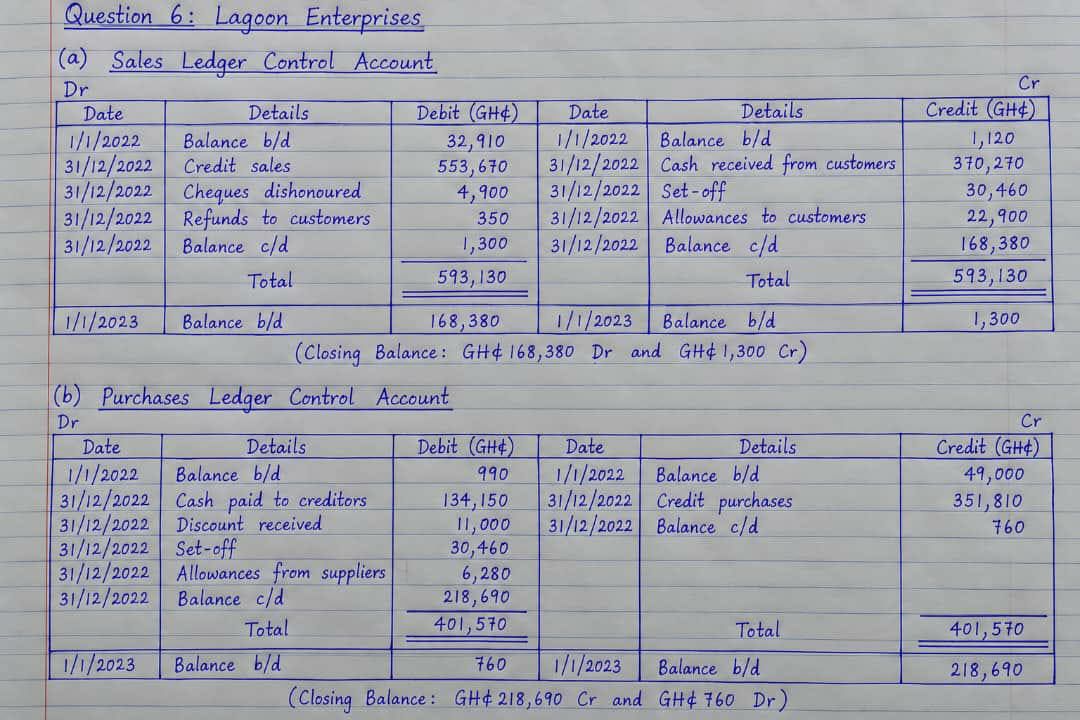 Question 6: Lagoon Enterprises
(a) Sales Ledger Control Account
Dr Cr
Date Details Debit (GH¢) Date Details Credit (GH¢)
1/1/2022 Balance b/d 32,910 1/1/2022 Balance b/d 1,120
31/12/2022 Credit sales 553,670 31/12/2022 Cash received from customers 370,270
31/12/2022 Cheques dishonoured 4,900 31/12/2022 Set-off 30,460
31/12/2022 Refunds to customers 350 31/12/2022 Allowances to customers 22,900
31/12/2022 Balance c/d 1,300 31/12/2022 Balance c/d 168,380
Total 593,130 Total 593,130
1/1/2023 Balance b/d 168,380 1/1/2023 Balance b/d 1,300
(Closing Balance: GH¢ 168,380 Dr and GH¢ 1,300 Cr)
(b) Purchases Ledger Control Account
Dr Cr
Date Details Debit (GH¢) Date Details Credit (GH¢)
1/1/2022 Balance b/d 990 1/1/2022 Balance b/d 49,000
31/12/2022 Cash paid to creditors 134,150 31/12/2022 Credit purchases 351,810
31/12/2022 Discount received 11,000 31/12/2022 Balance c/d 760
31/12/2022 Set-off 30,460
31/12/2022 Allowances from suppliers 6,280
31/12/2022 Balance c/d 218,690
Total 401,570 Total 401,570
1/1/2023 Balance b/d 760 1/1/2023 Balance b/d 218,690
(Closing Balance: GH¢ 218,690 Cr and GH¢ 760 Dr)